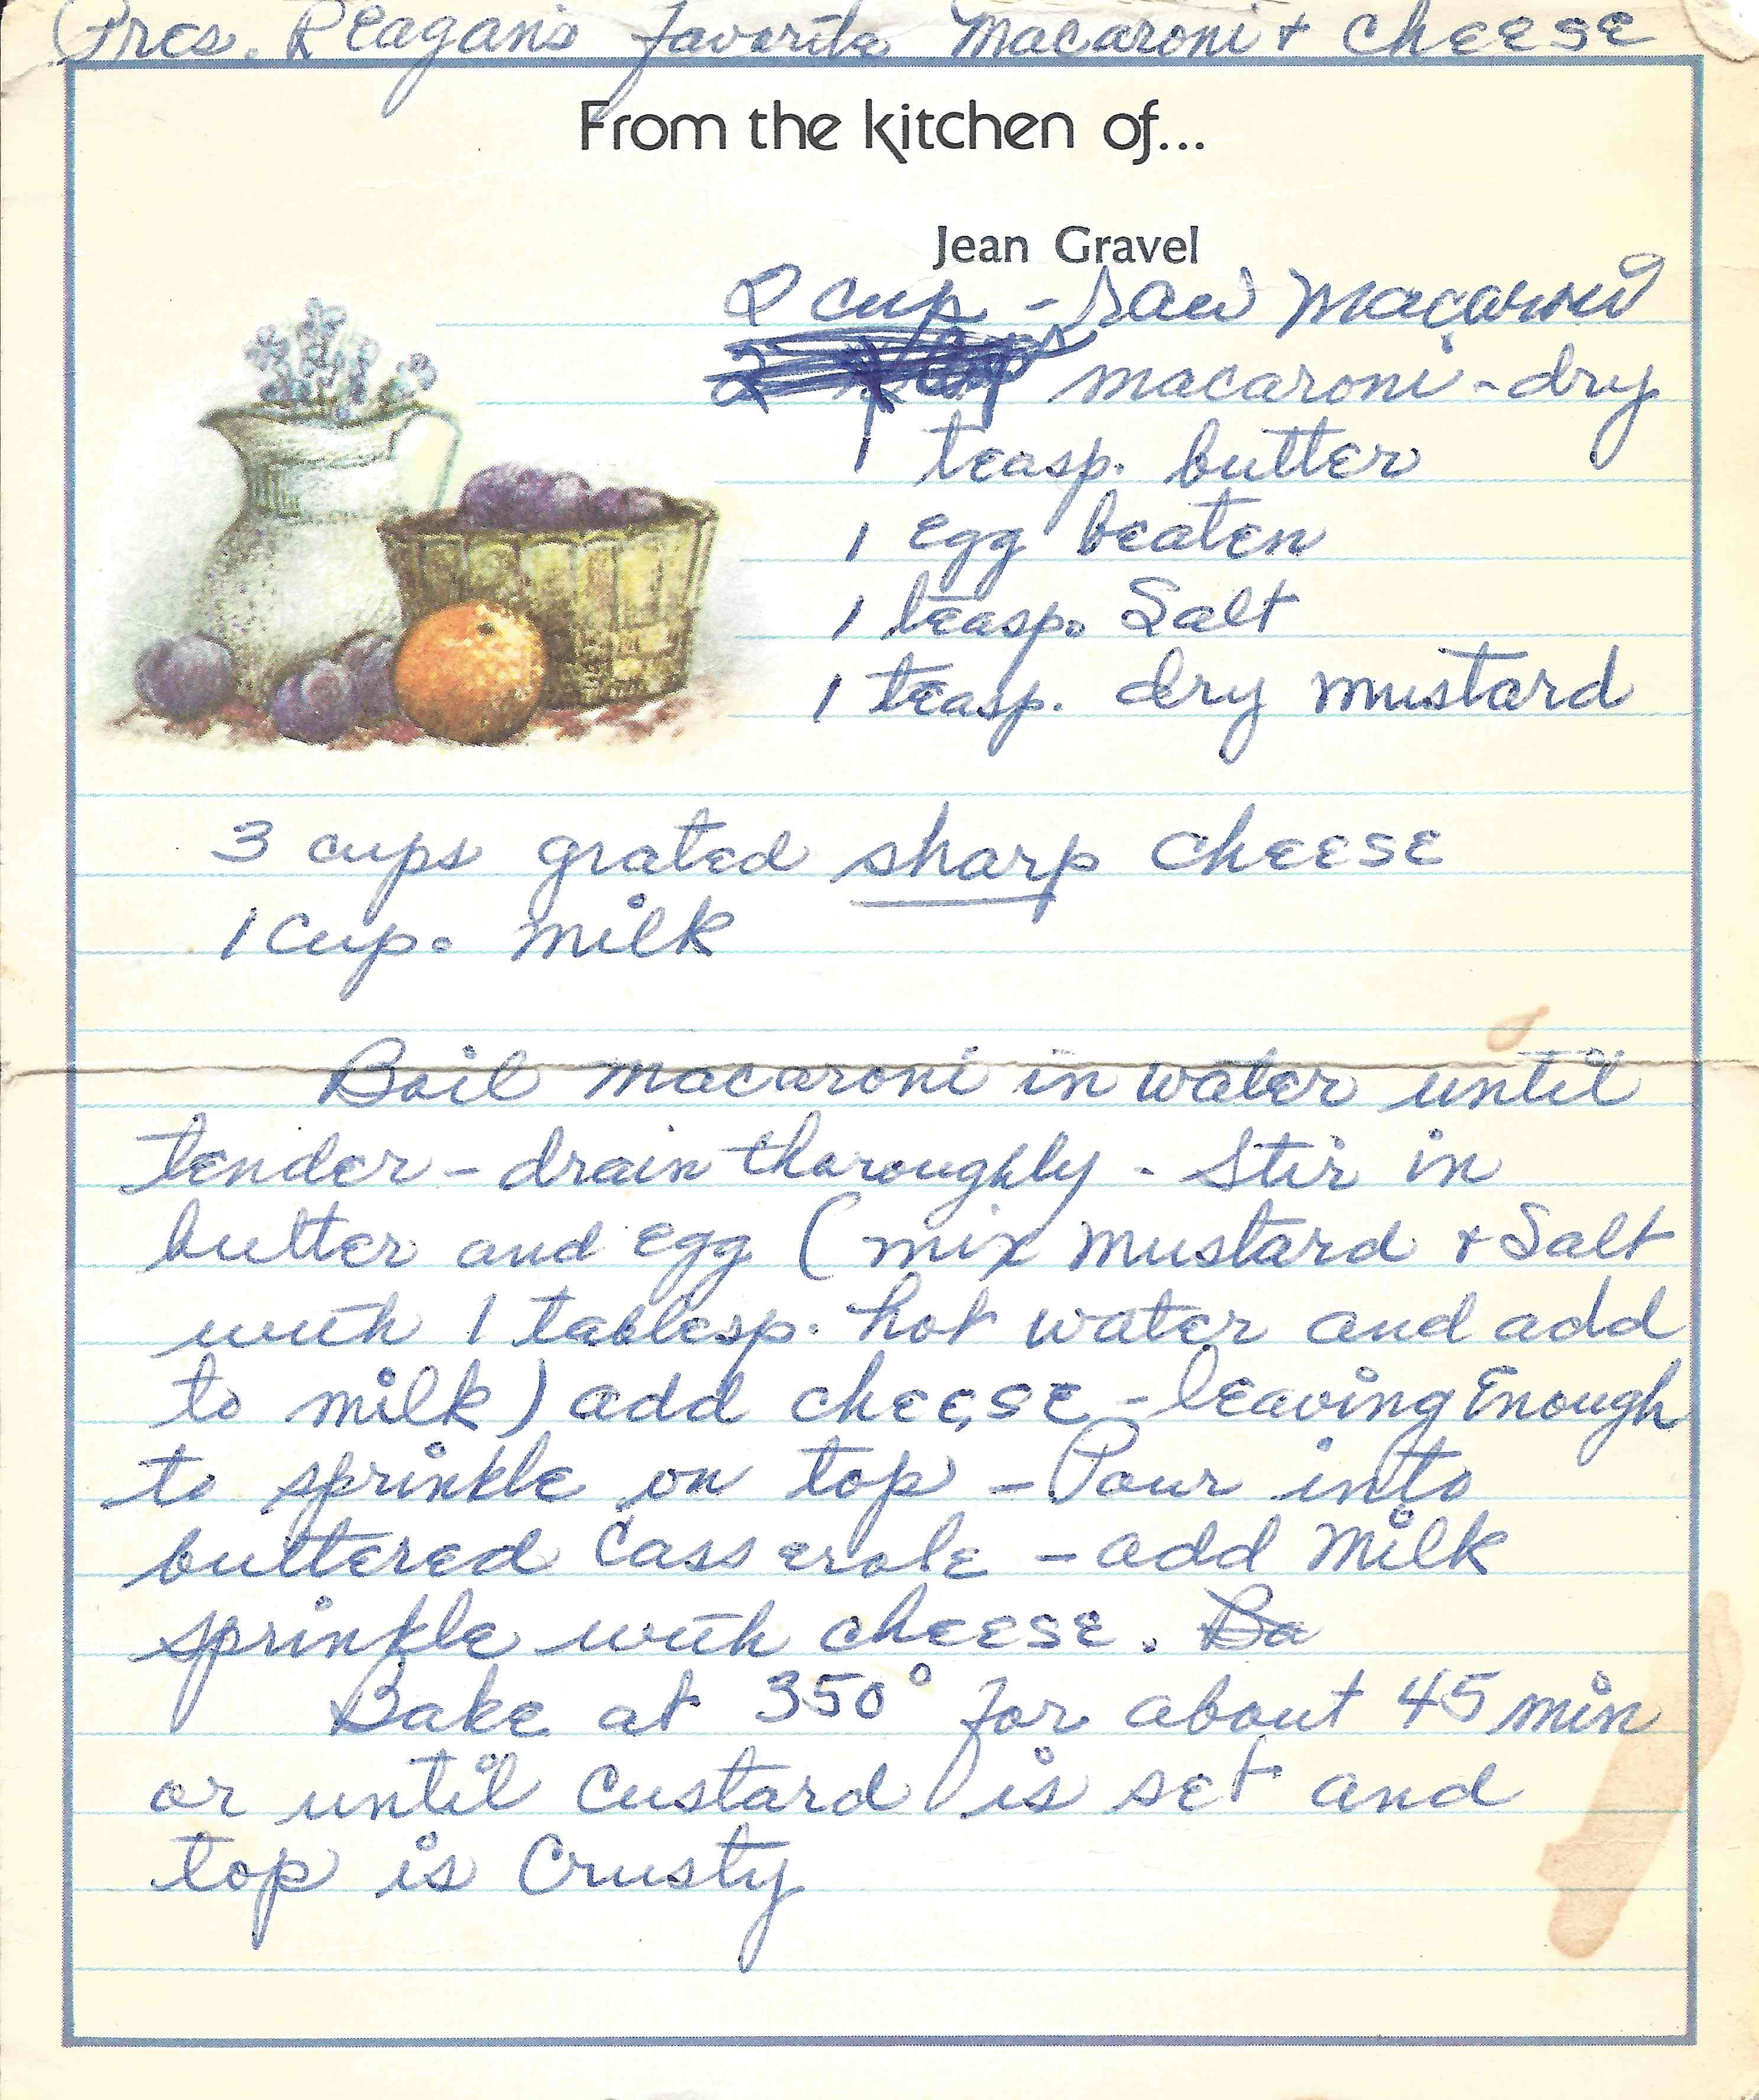 Pres. Reagan's favorite Macaroni + cheese
From the kitchen of...
Jean Gravel
2 cup - Raw Macaroni
macaroni - dry
1 teasp. butter
1 egg beaten
1 teasp. Salt
1 teasp. dry mustard
3 cups grated sharp cheese
1 cup. milk
Boil macaroni in water until
tender - drain thoroughly - Stir in
butter and egg (mix mustard + Salt
with 1 tablesp. hot water and add
to milk) add cheese - leaving Enough
to sprinkle on top - Pour into
buttered Casserole - add Milk
sprinkle with cheese. Ba
Bake at 350° for about 45 min
or until Custard is set and
top is Crusty